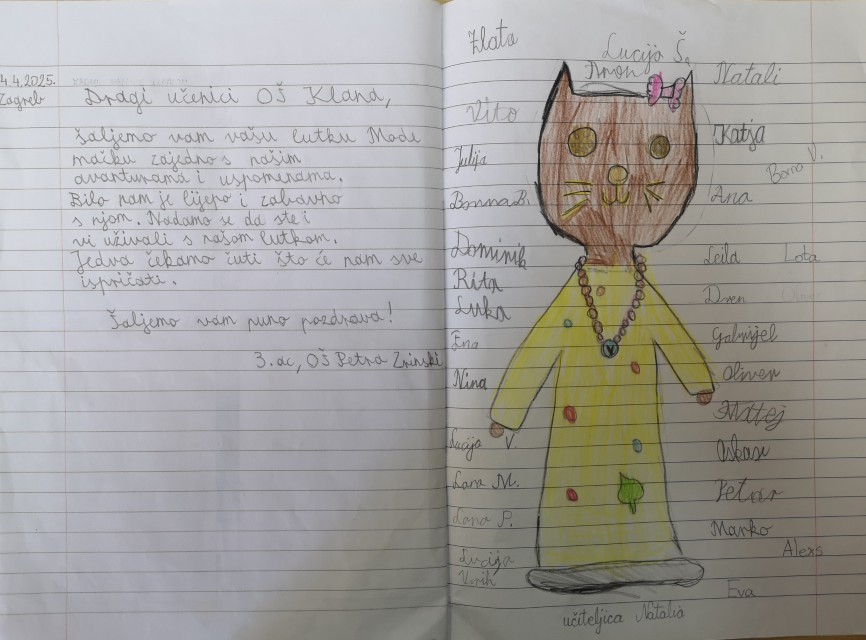 4.4.2025.
Zagreb
Dragi učenici OŠ Klana,
šaljemo vam vašu lutku Mode
mačku zajedno s našim
avanturama i uspomenama.
Bilo nam je lijepo i zabavno
s njom. Nadamo se da ste i
vi uživali s našom lutkom.
Jedva čekamo čuti što će nam sve
ispričati.
Šaljemo vam puno pozdrava!
3. ac, OŠ Petra Zrinski
Zlata
Lucija Š.
Aron
Natali
Vito
Katja
Julija
Borna V.
Bonna B.
Ana
Dominik
Leila
Lota
Rita
Dren
Luka
Ena
Gabrijel
V
Nina
Oliver
Matej
Lucija V.
Oskar
Lana M.
Petar
Lana P.
Marko
Lucija
Alexs
Eva
učiteljica Natalia